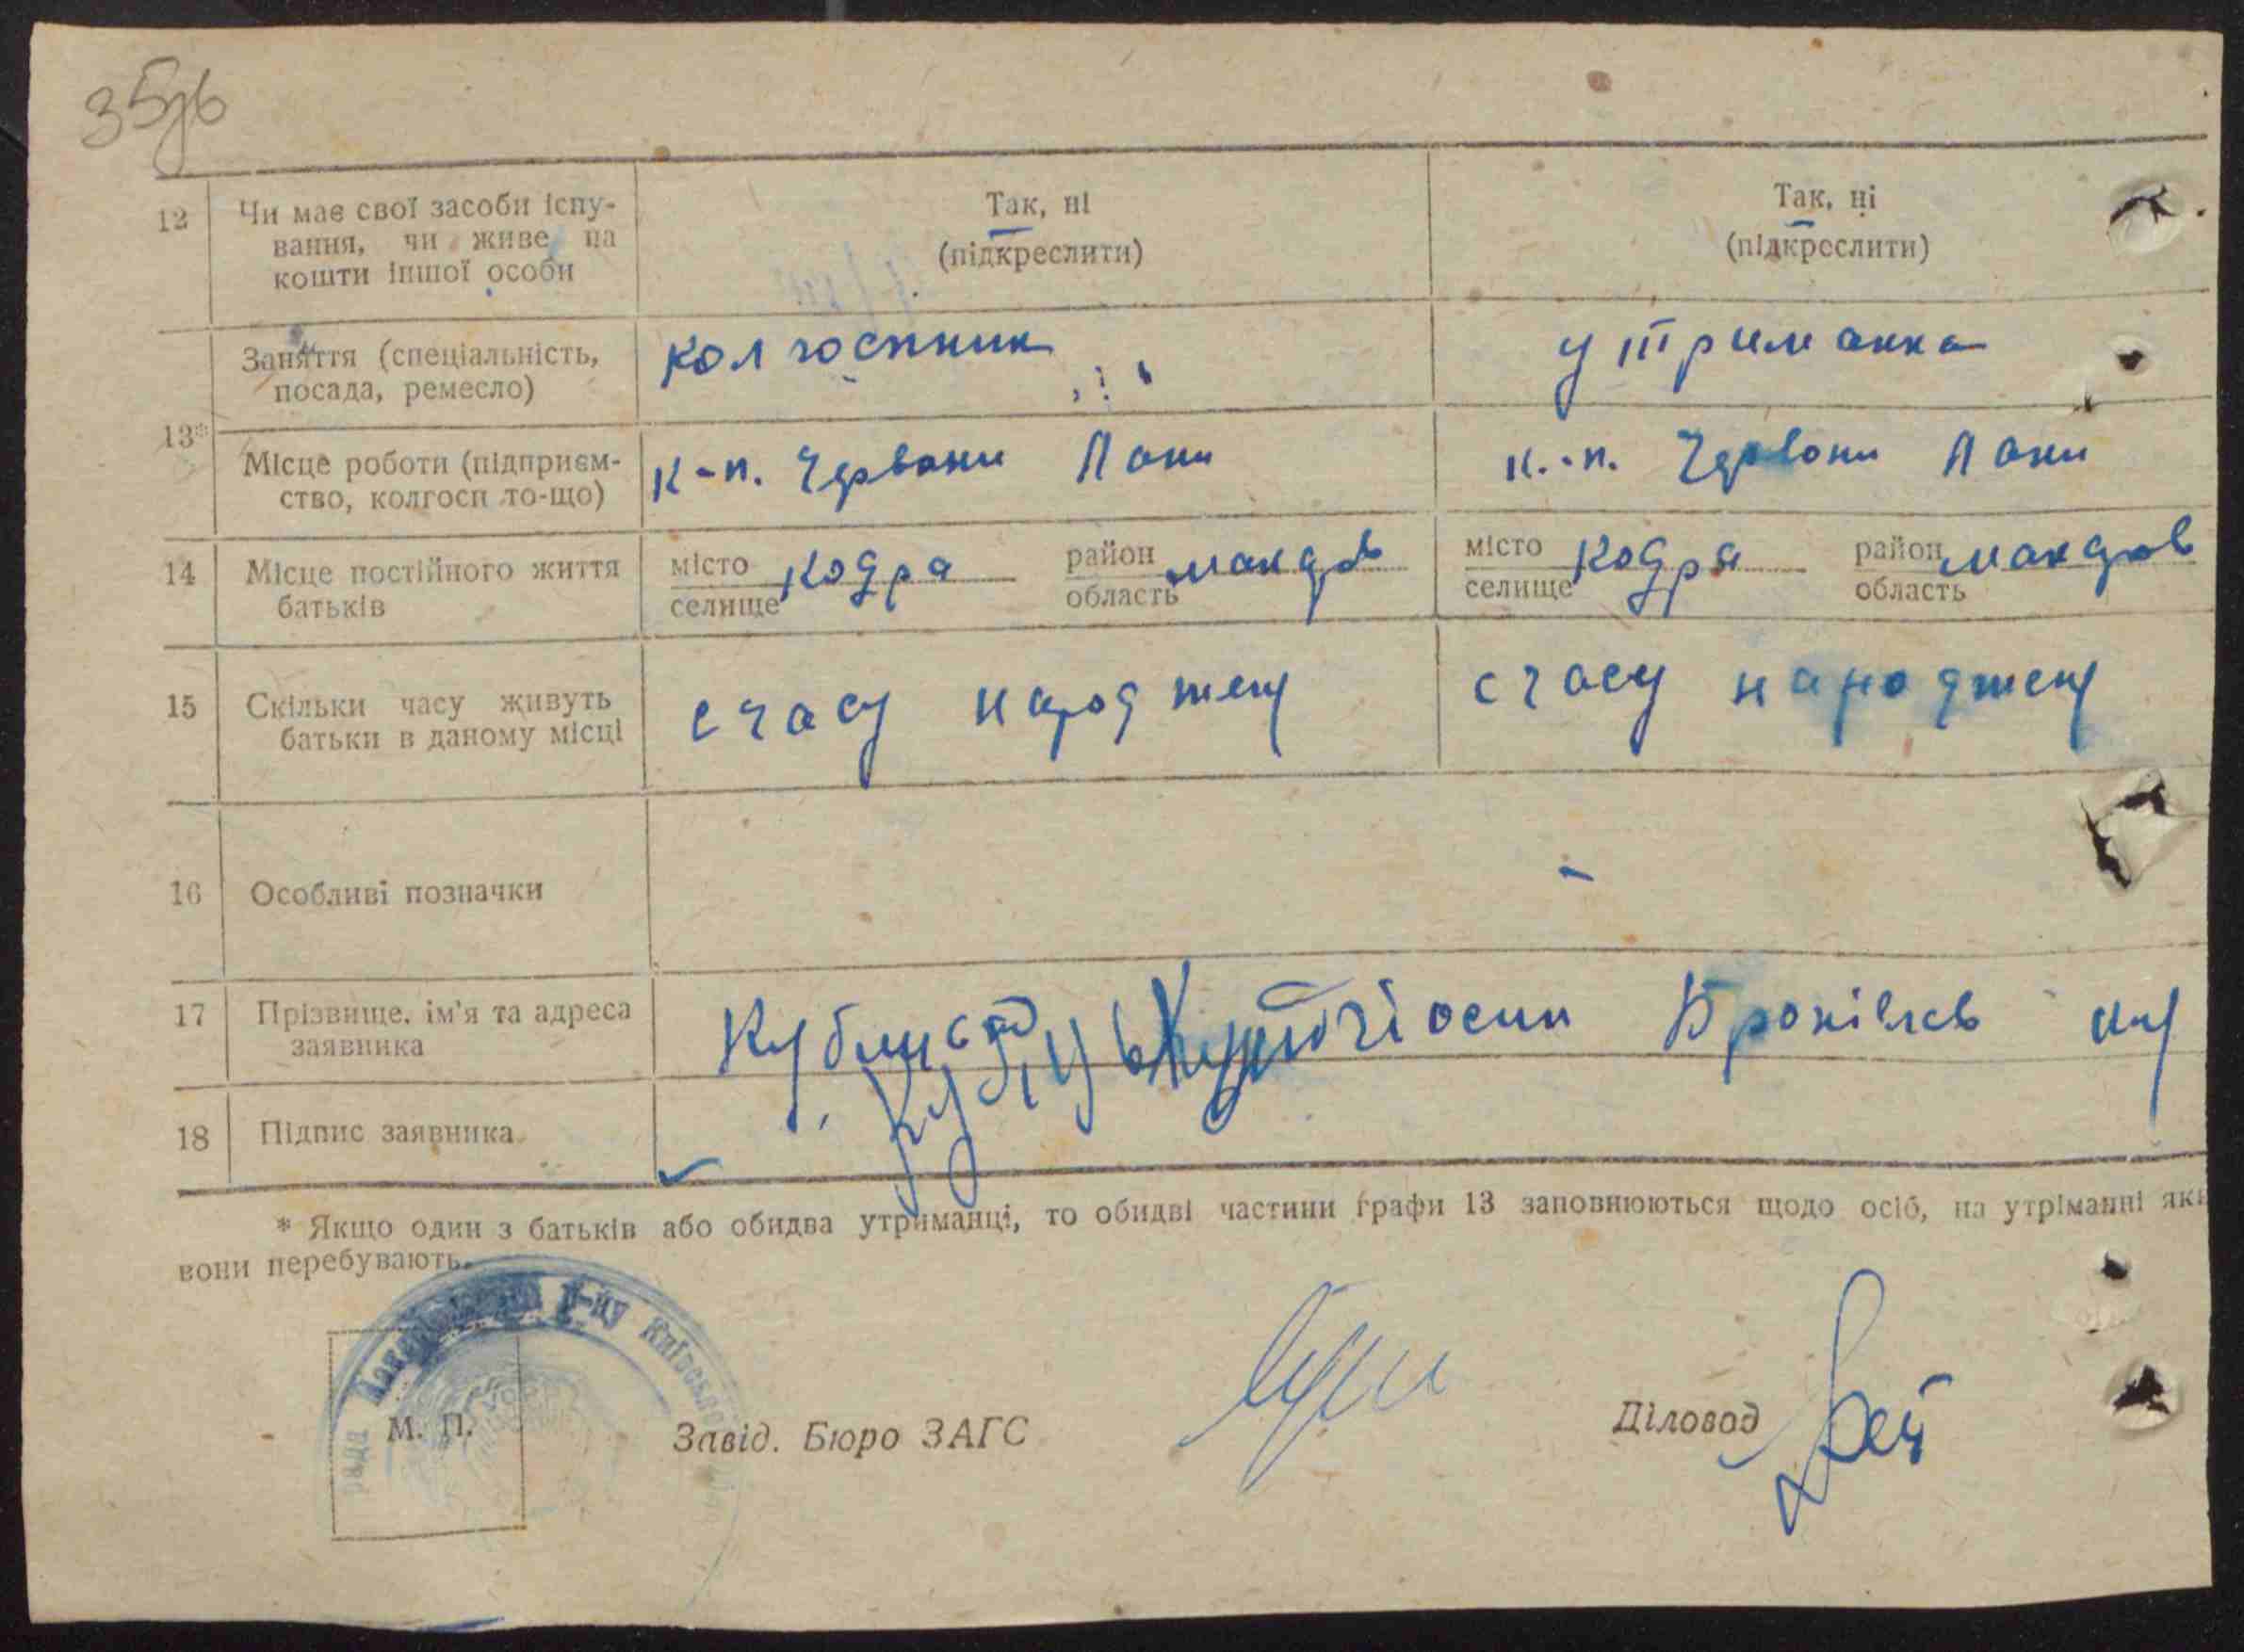 35зв
12 Чи має свої засоби існу-
вання, чи живе на
кошти іншої особи
Так, ні
(підкреслити)
Так, ні
(підкреслити)
13*
Заняття (спеціальність,
посада, ремесло)
колгоспник
утриманка
Місце роботи (підприєм-
ство, колгосп то-що)
к-п. Червони Лани
к.-п. Червони Лани
14 Місце постійного життя
батьків
місто
селище
Кодра
район
область
макарів
місто
селище
Кодра
район
область
макарів
15 Скільки часу живуть
батьки в даному місці
счасу народжен
счасу народжен
16 Особливі позначки
-
17 Прізвище, ім'я та адреса
заявника
осип
18 Підпис заявника
* Якщо один з батьків або обидва утриманці, то обидві частини графи 13 заповнюються щодо осіб, на утріманні яки
вони перебувають.
рада р-ну Київської
М. П.
Завід. Бюро ЗАГС
Діловод